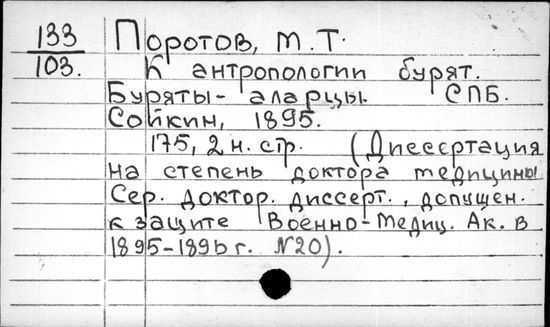 133
103.
Поротов, М.Т.
К антропологии бурят.
Буряты-аларцы. СПБ.
Сойкин, 1895.
175, 2 н. стр. (Диссертация
на степень доктора медицины
Сер. доктор. диссерт., допущен.
к защите Военно-Медиц. Ак. в
1895-1896 г. №20).